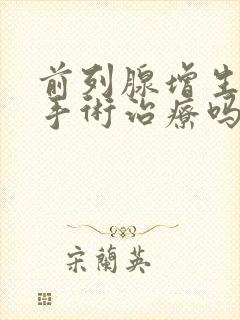 前列腺增生
手術治療吗
宋蘭英